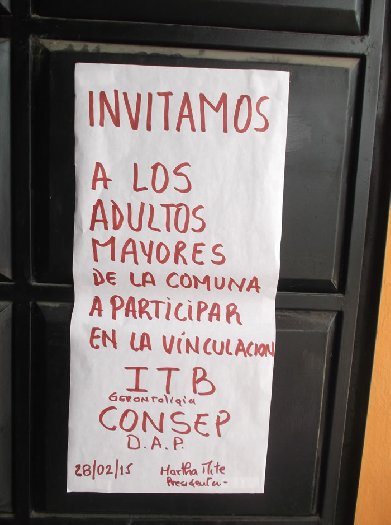 INVITAMOS
A LOS
ADULTOS
MAYORES
DE LA COMUNA
A PARTICIPAR
EN LA VINCULACION
ITB
GERONTOLOGIA
CONSEP
D.A.P.
28/02/15 Martha Mite
Presidenta-